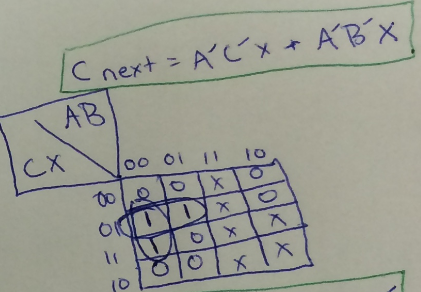 C next = A'C'X + A'B'X
AB
CX
00 01 11 10
00 0 0 X 0
01 1 1 X 0
11 1 0 X X
10 0 0 X X